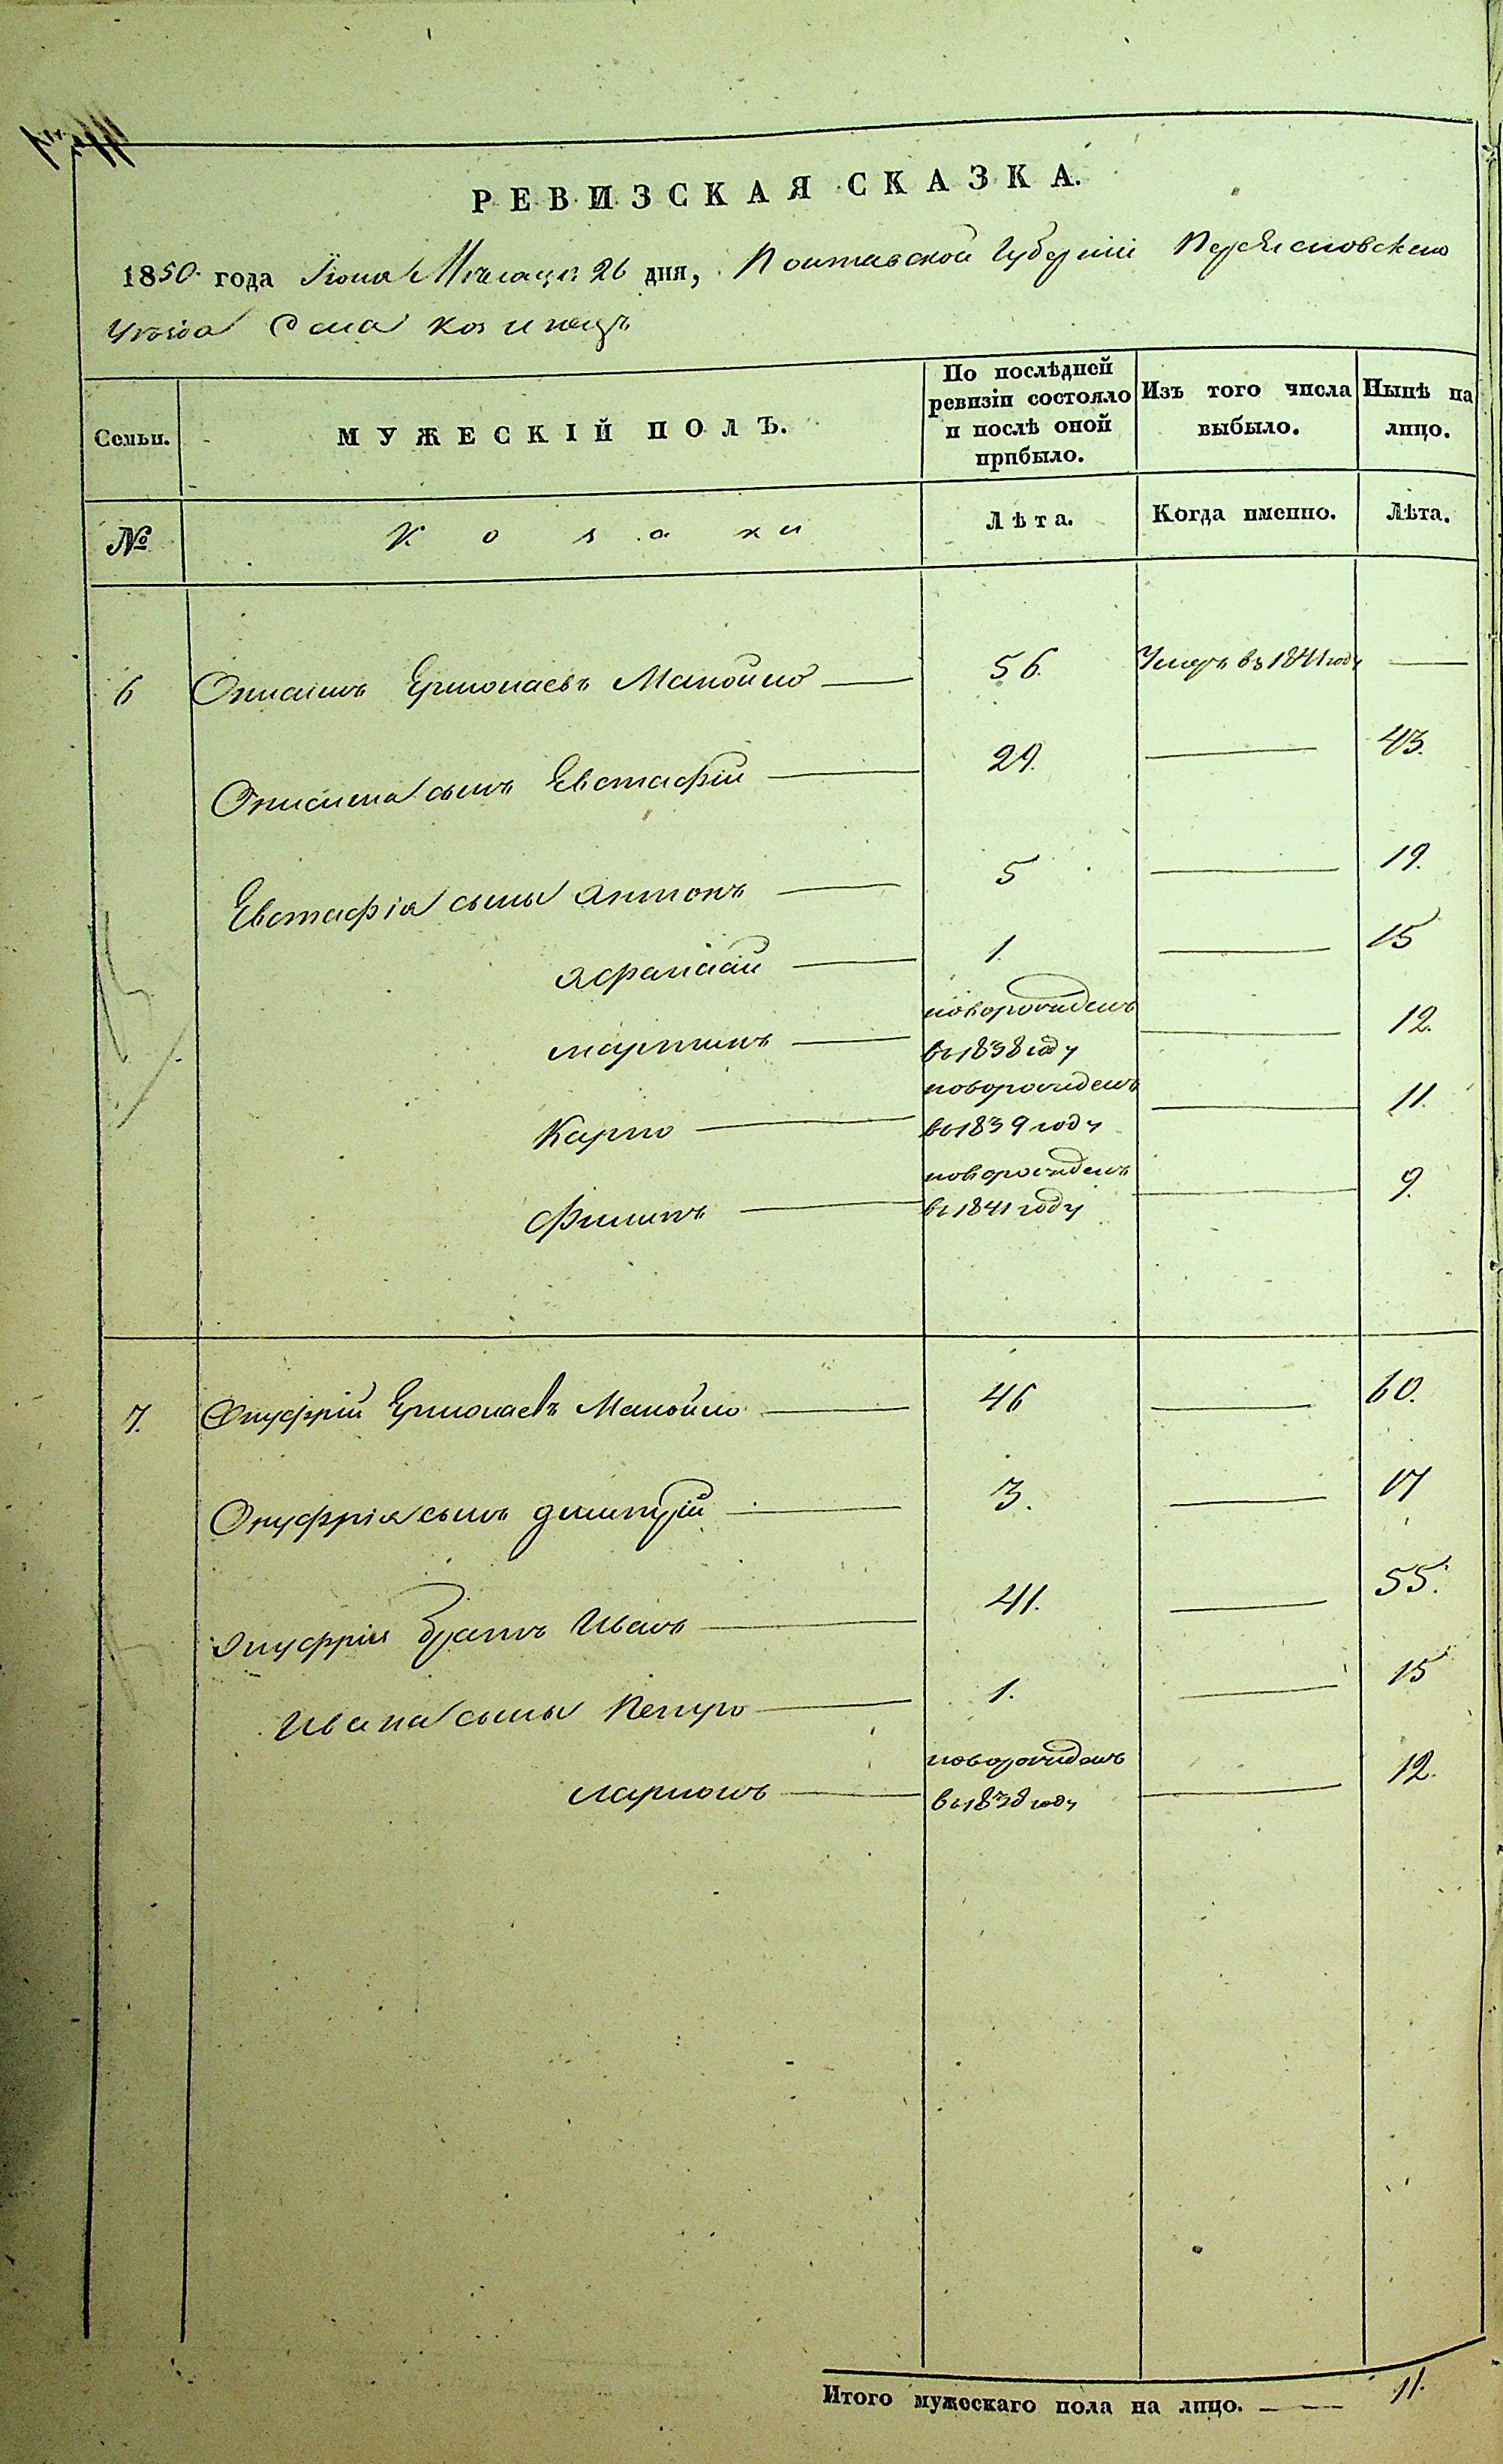 РЕВИЗСКАЯ СКАЗКА.
1850 года Іюня Мѣсяца 26 дня, Полтавской Губерніи Переясловскаго
Уѣзда Села Козинецъ
Семьи.
МУЖЕСКІЙ ПОЛЪ.
По послѣдней
ревизіи состояло
и послѣ оной
прибыло.
Изъ того числа
выбыло.
Нынѣ на
лицо.
№
Козаки
Лѣта.
Когда именно.
Лѣта.
6 Ермолаевъ Манойло 56. Умеръ въ 1841 году
сынъ Евстафій 29. 43.
Евстафія сыны Антонъ 5 19.
Афанасій 1. 15
Мартинъ новорожденъ
въ 1838 году 12.
Карпо новорожденъ
въ 1839 году 11.
Филипъ новорожденъ
въ 1841 году 9.
7. Онуфрій Ермолаевъ Манойло 46 60.
Онуфрія сынъ Дмитрій 3. 17
Онуфрія братъ Иванъ 41. 55.
Ивана сыны Петро 1. 15
Ларіонъ новорожденъ
въ 1838 году 12.
Итого мужескаго пола на лицо. 11.